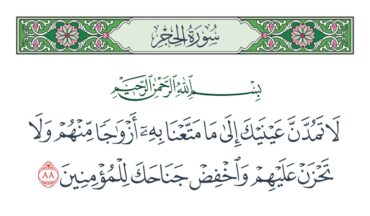 سُورَةُ الحِجْرِ
بِسْمِ اللَّهِ الرَّحْمَٰنِ الرَّحِيمِ
لَا تَمُدَّنَّ عَيْنَيْكَ إِلَىٰ مَا مَتَّعْنَا بِهِۦٓ أَزْوَٰجًا مِّنْهُمْ وَلَا
تَحْزَنْ عَلَيْهِمْ وَٱخْفِضْ جَنَاحَكَ لِلْمُؤْمِنِينَ ٨٨